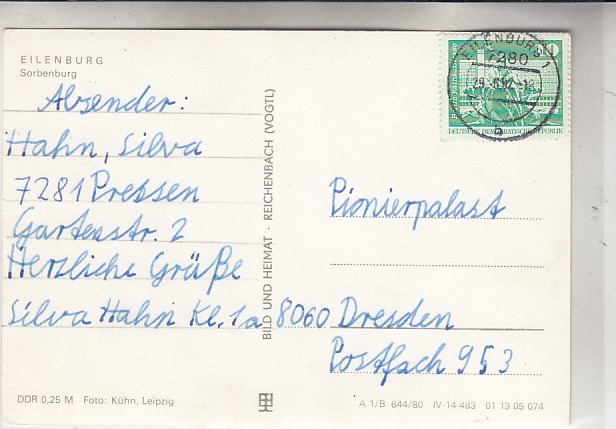 EILENBURG
Sorbenburg
Absender:
Hahn, Silva
7281 Pressen
Gartenstr. 2
Herzliche Grüße
Silva Hahn Kl. 1a
BILD UND HEIMAT · REICHENBACH (VOGTL)
EILENBURG 1
7280
b
10
DEUTSCHE DEMOKRATISCHE REPUBLIK
Pionierpalast
8060 Dresden
Postfach 953
DDR 0,25 M Foto: Kühn, Leipzig
A 1/B 644/80 IV-14-483 01 13 05 074